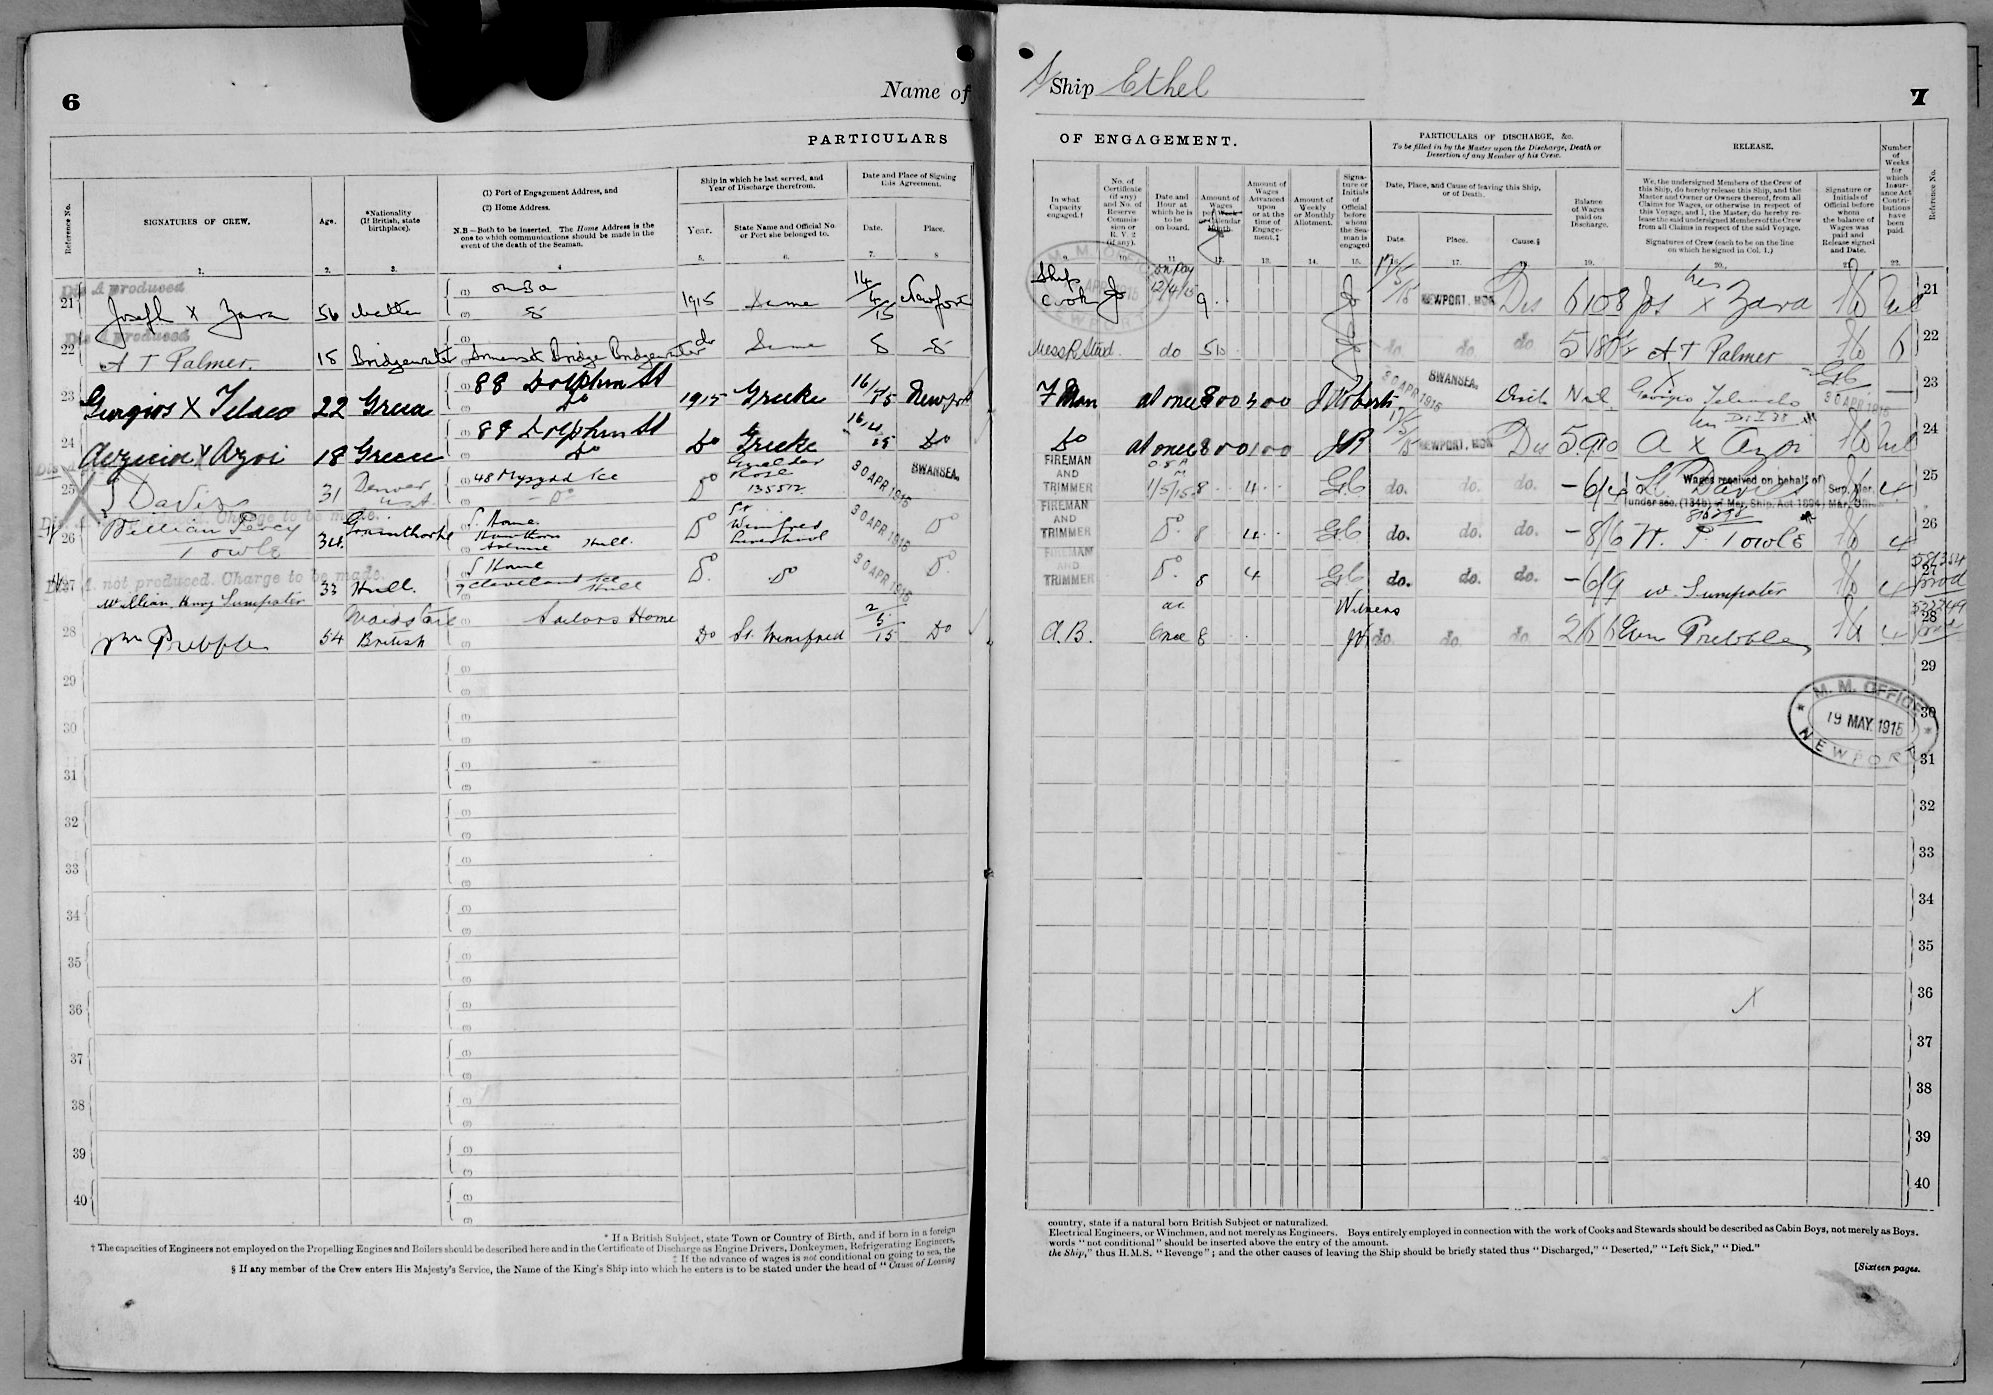 6
Name of
PARTICULARS
Reference No.
SIGNATURES OF CREW.
Age.
*Nationality
(If British, state
birthplace).
(1) Port of Engagement Address, and
(2) Home Address.
N.B—Both to be inserted. The Home Address is the
one to which communications should be made in the
event of the death of the Seaman.
Ship in which he last served, and
Year of Discharge therefrom.
Year.
State Name and Official No.
or Port she belonged to.
Date and Place of Signing
this Agreement.
Date.
Place.
1. 2. 3. 4 5. 6. 7. 8
Dis A produced
21 Joseph X Zara 56 Malta on Bd 1915 Same 14/4/15 Newport
Dis A produced
22 A T Palmer. 18 Bridgewater Somerset Bridge Bridgewater do Same
23 X 22 Greece 88 Dolphin St Do 1915 Greeke 16/4/15 Newport
24 X 18 Greece 88 Dolphin St Do Do Greeke 16/4/15 Do
25 Davies 31 Denver U.S.A. 48 Do Rose 135512 30 APR 1915 SWANSEA.
Charge to be made.
26 William Percy Towle 34 S. Home. Hawthorn Avenue Hull. Do St Winifred Liverpool 30 APR 1915 Do
A. not produced. Charge to be made.
27 William Henry Sumpster 33 Hull. S Home 7 Cleveland Tce Hull Do. Do 30 APR 1915 Do.
28 Wm Prebble 54 Maidstone British Sailors Home Do St. Winifred 2/5/15 Do
29
30
31
32
33
34
35
36
37
38
39
40
* If a British Subject, state Town or Country of Birth, and if born in a foreign
† The capacities of Engineers not employed on the Propelling Engines and Boilers should be described here and in the Certificate of Discharge as Engine Drivers, Donkeymen, Refrigerating Engineers,
‡ If the advance of wages is not conditional on going to sea, the
§ If any member of the Crew enters His Majesty's Service, the Name of the King's Ship into which he enters is to be stated under the head of "Cause of Leaving
S/Ship Ethel
7
OF ENGAGEMENT.
PARTICULARS OF DISCHARGE, &c.
To be filled in by the Master upon the Discharge, Death or
Desertion of any Member of his Crew.
RELEASE.
In what
Capacity
engaged.†
No. of
Certificate
(if any)
and No. of
Reserve
Commis-
sion or
R. V. 2
(if any).
Date and
Hour at
which he is
to be
on board.
Amount of
Wages
per Week
or Calendar
Month.
Amount of
Wages
Advanced
upon
or at the
time of
Engage-
ment.‡
Amount of
Weekly
or Monthly
Allotment.
Signa-
ture or
Initials
of
Official
before
whom
the Sea-
man is
engaged
Date, Place, and Cause of leaving this Ship,
or of Death.
Date.
Place.
Cause.§
Balance
of Wages
paid on
Discharge.
We, the undersigned Members of the Crew of
this Ship, do hereby release this Ship, and the
Master and Owner or Owners thereof, from all
Claims for Wages, or otherwise in respect of
this Voyage, and I, the Master, do hereby re-
lease the said undersigned Members of the Crew
from all Claims in respect of the said Voyage.
Signatures of Crew (each to be on the line
on which he signed in Col. 1.)
Signature or
Initials of
Official before
whom
the balance of
Wages was
paid and
Release signed
and Date.
Number
of
Weeks
for
which
Insur-
ance Act
Contri-
butions
have
been
paid.
Reference No.
9. 10. 11 12. 13. 14. 15. 16. 17. 18. 19. 20. 21. 22.
Ships Cook 9 17/5/15 NEWPORT. MON Dis 6 10 8 Jos X Zara Nil 21
Mess R Stwd. do 5 10 do do. do 5 18 A T Palmer 6 22
F Man At once 8 0 0 J Roberts 30 APR 1915 SWANSEA. Nil X 30 APR 1915 23
Do At once 8 0 0 1 0 0 JR 17/5/15 NEWPORT. MON Dis 5 9 10 A X Nil 24
FIREMAN AND TRIMMER 1/5/15 8 4 do. do. do. Davies 4 25
Wages received on behalf of Sup. Mer.
under sec. (134b) of Mer. Ship. Act 1894) Mar.
FIREMAN AND TRIMMER Do 8 4 do. do. do. – 8/6 W. P. Towle 4 26
FIREMAN AND TRIMMER Do. 8 4 do. do. do. – 6/9 W. Sumpster 4 27
A. B. at Once 8 Witness do. do. do. 2 6 6 Wm Prebble 4 28
29
M. M. OFFICE
19 MAY 1915
NEWPORT
30
31
32
33
34
35
36
37
38
39
40
country, state if a natural born British Subject or naturalized.
Electrical Engineers, or Winchmen, and not merely as Engineers. Boys entirely employed in connection with the work of Cooks and Stewards should be described as Cabin Boys, not merely as Boys.
words "not conditional" should be inserted above the entry of the amount.
the Ship," thus H.M.S. "Revenge"; and the other causes of leaving the Ship should be briefly stated thus "Discharged," "Deserted," "Left Sick," "Died."
[Sixteen pages.